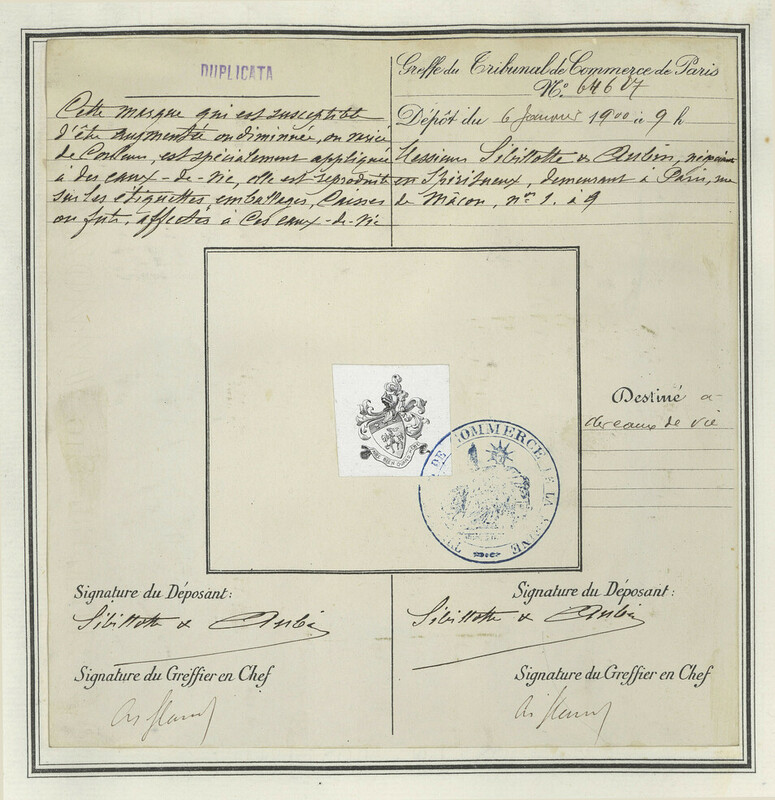 DUPLICATA
Cette marque qui est susceptible
d'être augmentée ou diminuée, ou variée
de Couleurs, est spécialement appliquée
à des eaux-de-vie, elle est reproduite
sur les étiquettes, emballages, Caisses
ou futs, affectés à Ces eaux-de-vie
Greffe du Tribunal de Commerce de Paris
N°
Dépôt du 6 Janvier 1900 à 9 h
Messieurs Sibillotte & Aubin, négociants
en Spiritueux, demeurant à Paris, rue
de Mâcon, nos 1. à 9
DE COMMERCE DE LA SEINE
Destiné à
des eaux de vie
Signature du Déposant:
Sibillotte & Aubin
Signature du Greffier en Chef
Signature du Déposant:
Sibillotte & Aubin
Signature du Greffier en Chef